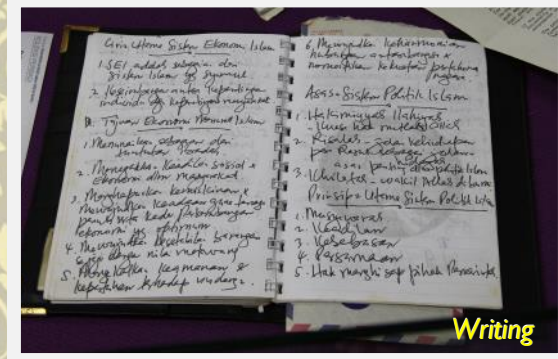 Ciri Utama Sistem Ekonomi Islam
1. SEI adalah sebagai dari
Sistem Islam yg syumul
2. Keseimbangan antara kepentingan
individu dgn kepentingan masyarakat
Tujuan Ekonomi Menurut Islam
1. Menunaikan sebagai dari
tuntutan
2. Menegakkan Keadilan sosial &
Ekonomi dlm masyarakat
3. Menghapuskan kemiskinan &
mewujudkan keadaan guna tenaga
penuh serta kadar perkembangan
ekonomi yg optimum
4. Mewujudkan kestabilan barangan
dengan nilai matawang
5. Mengekalkan keamanan &
kepatuhan terhadap undang2.
6. Mewujudkan keharmonian
hubungan antarabangsa &
kekuatan pertahanan
negara.
Asas Sistem Politik Islam
1. Hakimiyyah Ilahiyyah
- Kuasa mutlak
2. Risalah -
asas penting politik Islam
3. Khilafah - wakil Allah di bumi
Prinsip Utama Sistem Politik Islam
1. Musyawarah
2. Keadilan
3. Kebebasan
4. Persamaan
5. Hak menghisap pihak Pemerintah
Writing